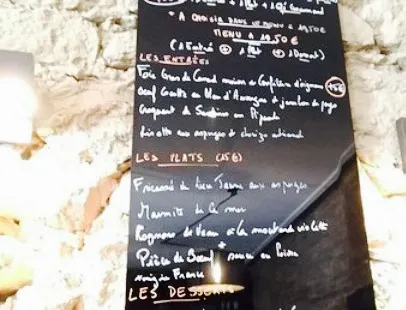 * A CHOISIR DANS LE MENU à 19,50€
MENU A 19,50 €
(1 Entrée + 1 Plat + 1 Dessert)
LES ENTRÉES
Foie Gras de Canard maison et Confiture d'oignons +5€
Oeuf Cocotte au Bleu d'Auvergne et jambon de pays
Croquant de Sardines en
Risotto aux asperges et chorizo artisanal
LES PLATS (15€)
Fricassé de Lieu Jaune aux asperges
Marmite de la mer
Rognons de Veau à la moutarde violette
Pièce de Boeuf sauce au Poivre
origine France
LES DESSERTS